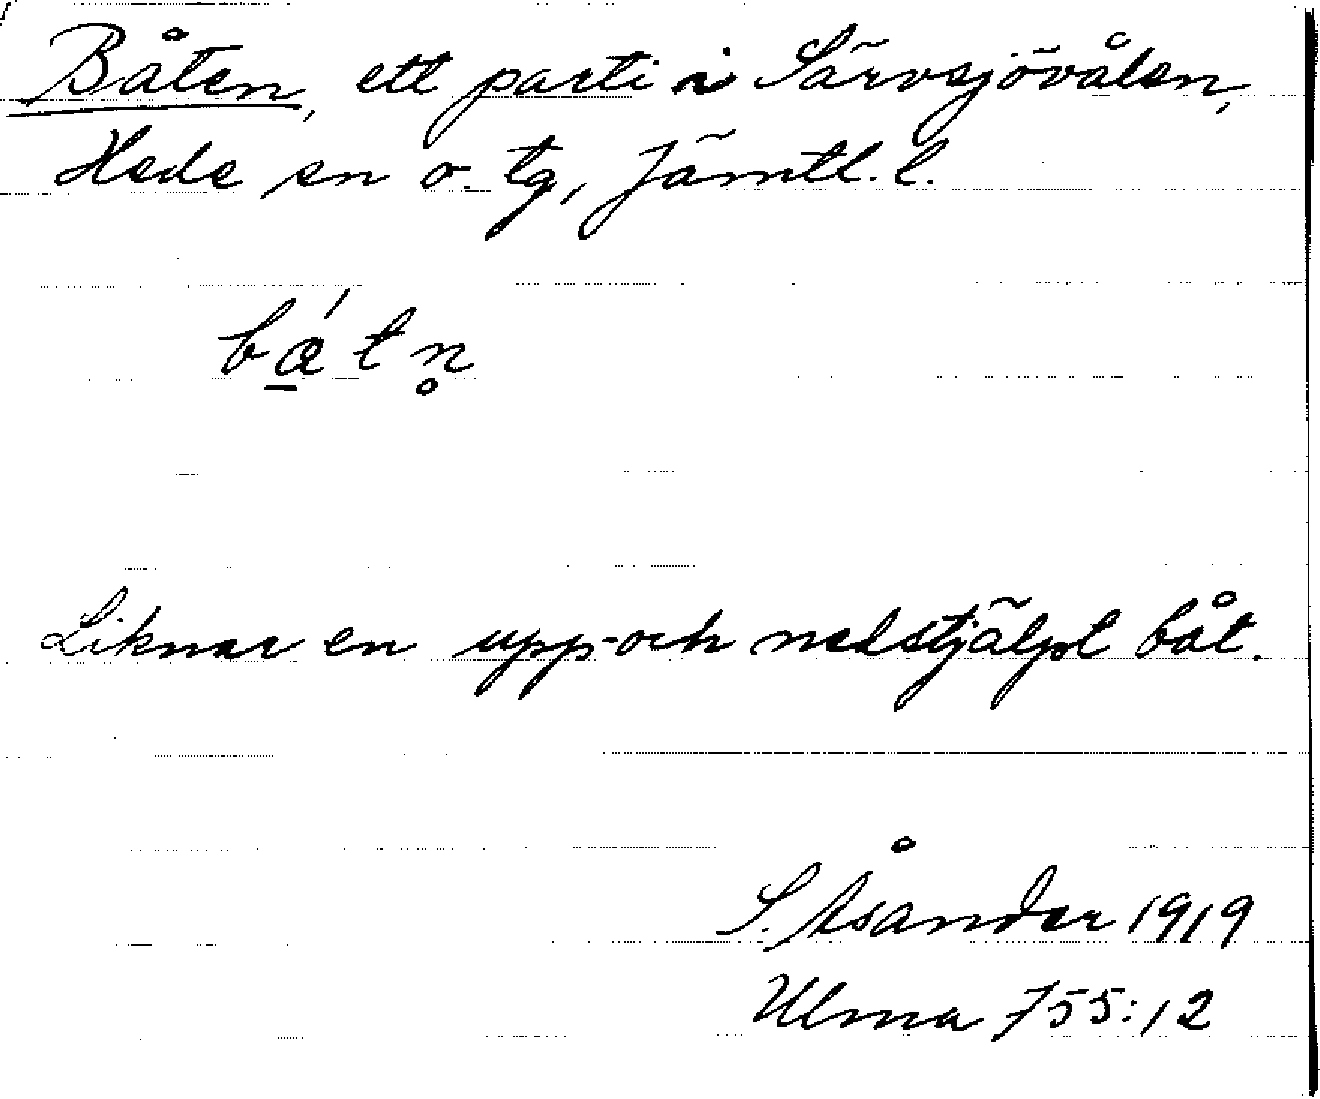 Båten, ett parti i Särvsjövålen,
Hede sn o. tg, Jämtl. l.
bá̱tn̥
Liknar en upp-och nedstjälpt båt.
S. Åsander 1919
Ulma 755:12